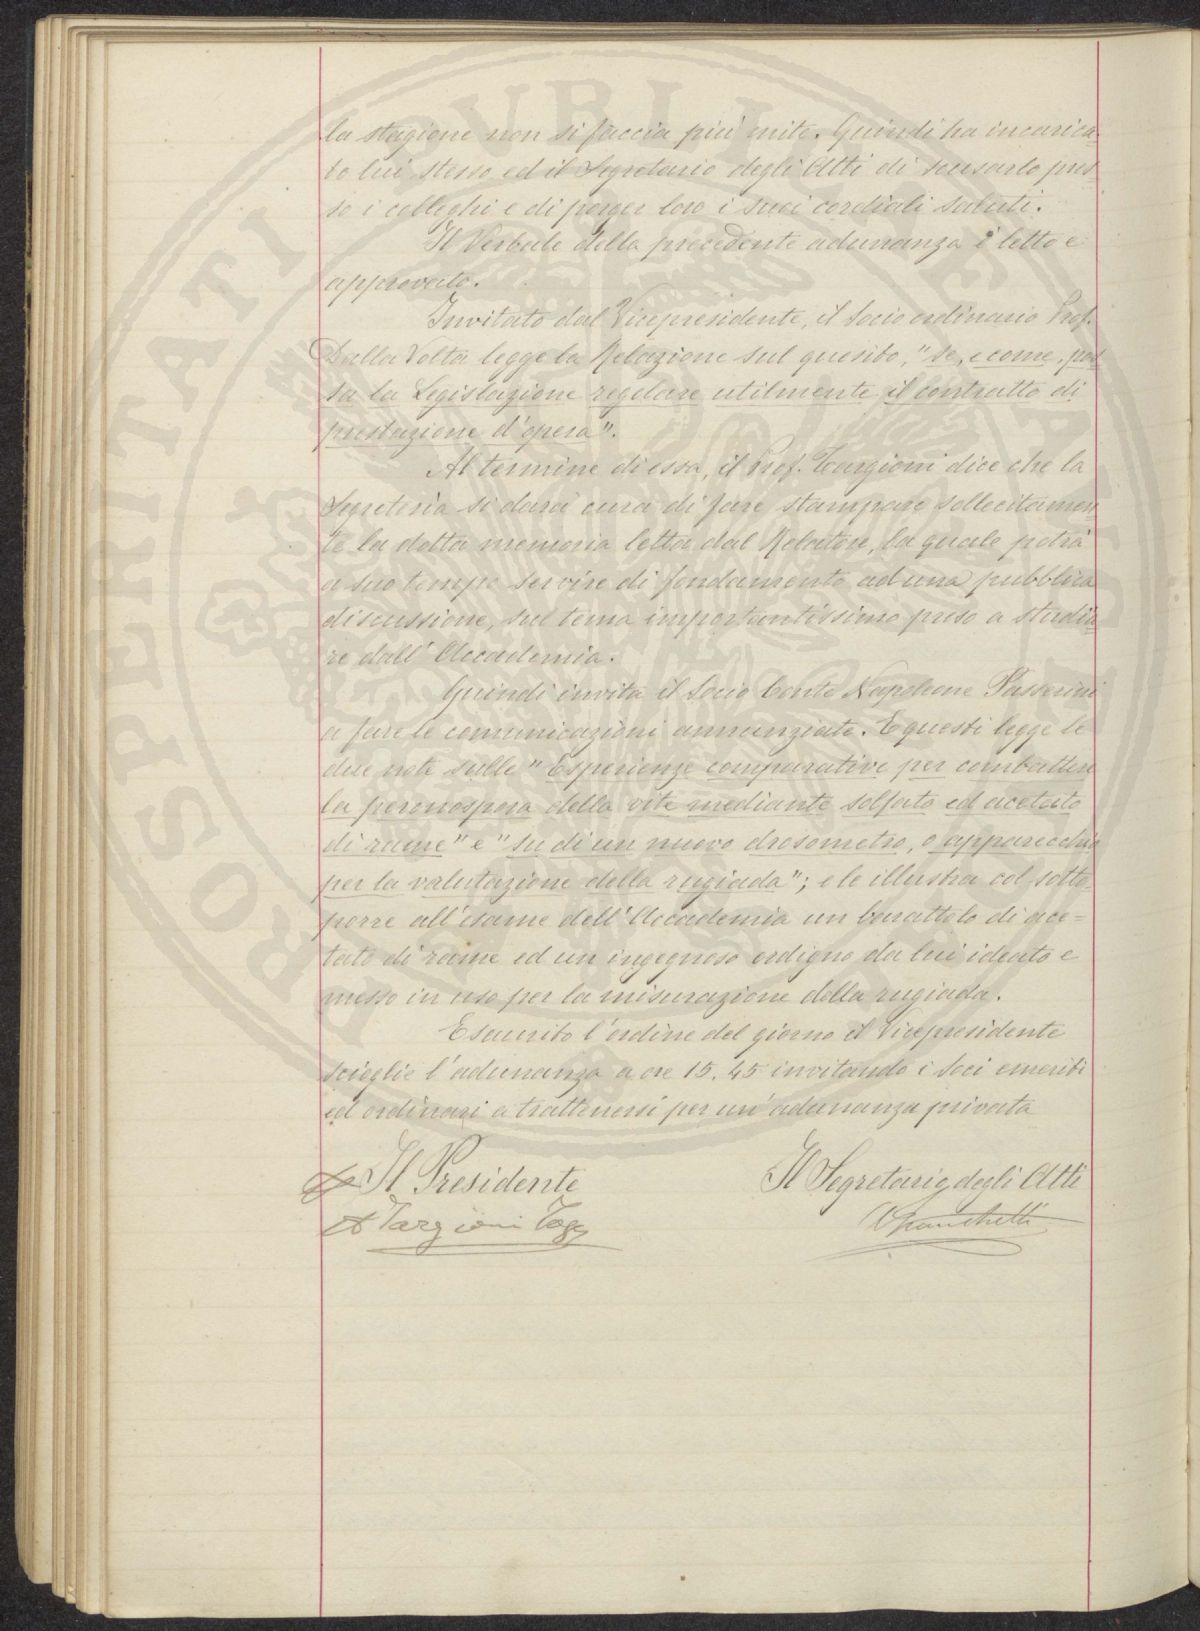 la stagione non si faccia più mite. Quindi ha incarica-
to lui stesso ed il Segretario degli Atti di scusarlo pres-
so i colleghi e di porger loro i suoi cordiali saluti.
Il Verbale della precedente adunanza è letto e
approvato.
Invitato dal Vicepresidente, il Socio ordinario Prof.
Dalla Volta legge la Relazione sul quesito, "se, e come, pos-
sa la Legislazione regolare utilmente il contratto di
prestazione d'opera".
Al termine di essa, il Prof. Targioni dice che la
Segreteria si darà cura di fare stampare sollecitamen-
te la dotta memoria letta dal Relatore, la quale potrà
a suo tempo servire di fondamento ad una pubblica
discussione, sul tema importantissimo preso a studia-
re dall'Accademia.
Quindi invita il Socio Conte Napoleone Passerini
a fare le comunicazioni annunziate. E questi legge le
due note sulle "Esperienze comparative per combattere
la peronospora della vite mediante solfato ed acetato
di rame" e "su di un nuovo drosometro, o apparecchio
per la valutazione della rugiada"; e le illustra col sotto-
porre all'esame dell'Accademia un barattolo di ace=
tato di rame ed un ingegnoso ordigno da lui ideato e
messo in uso per la misurazione della rugiada.
Esaurito l'ordine del giorno il Vicepresidente
scioglie l'adunanza a ore 15.45 invitando i Soci emeriti
ed ordinari a trattenersi per un'adunanza privata
Il Presidente
Il Segretario degli Atti
A Targioni Tozz
V Franchetti
PROSPERITATI PVBLICAE AVGENDAE